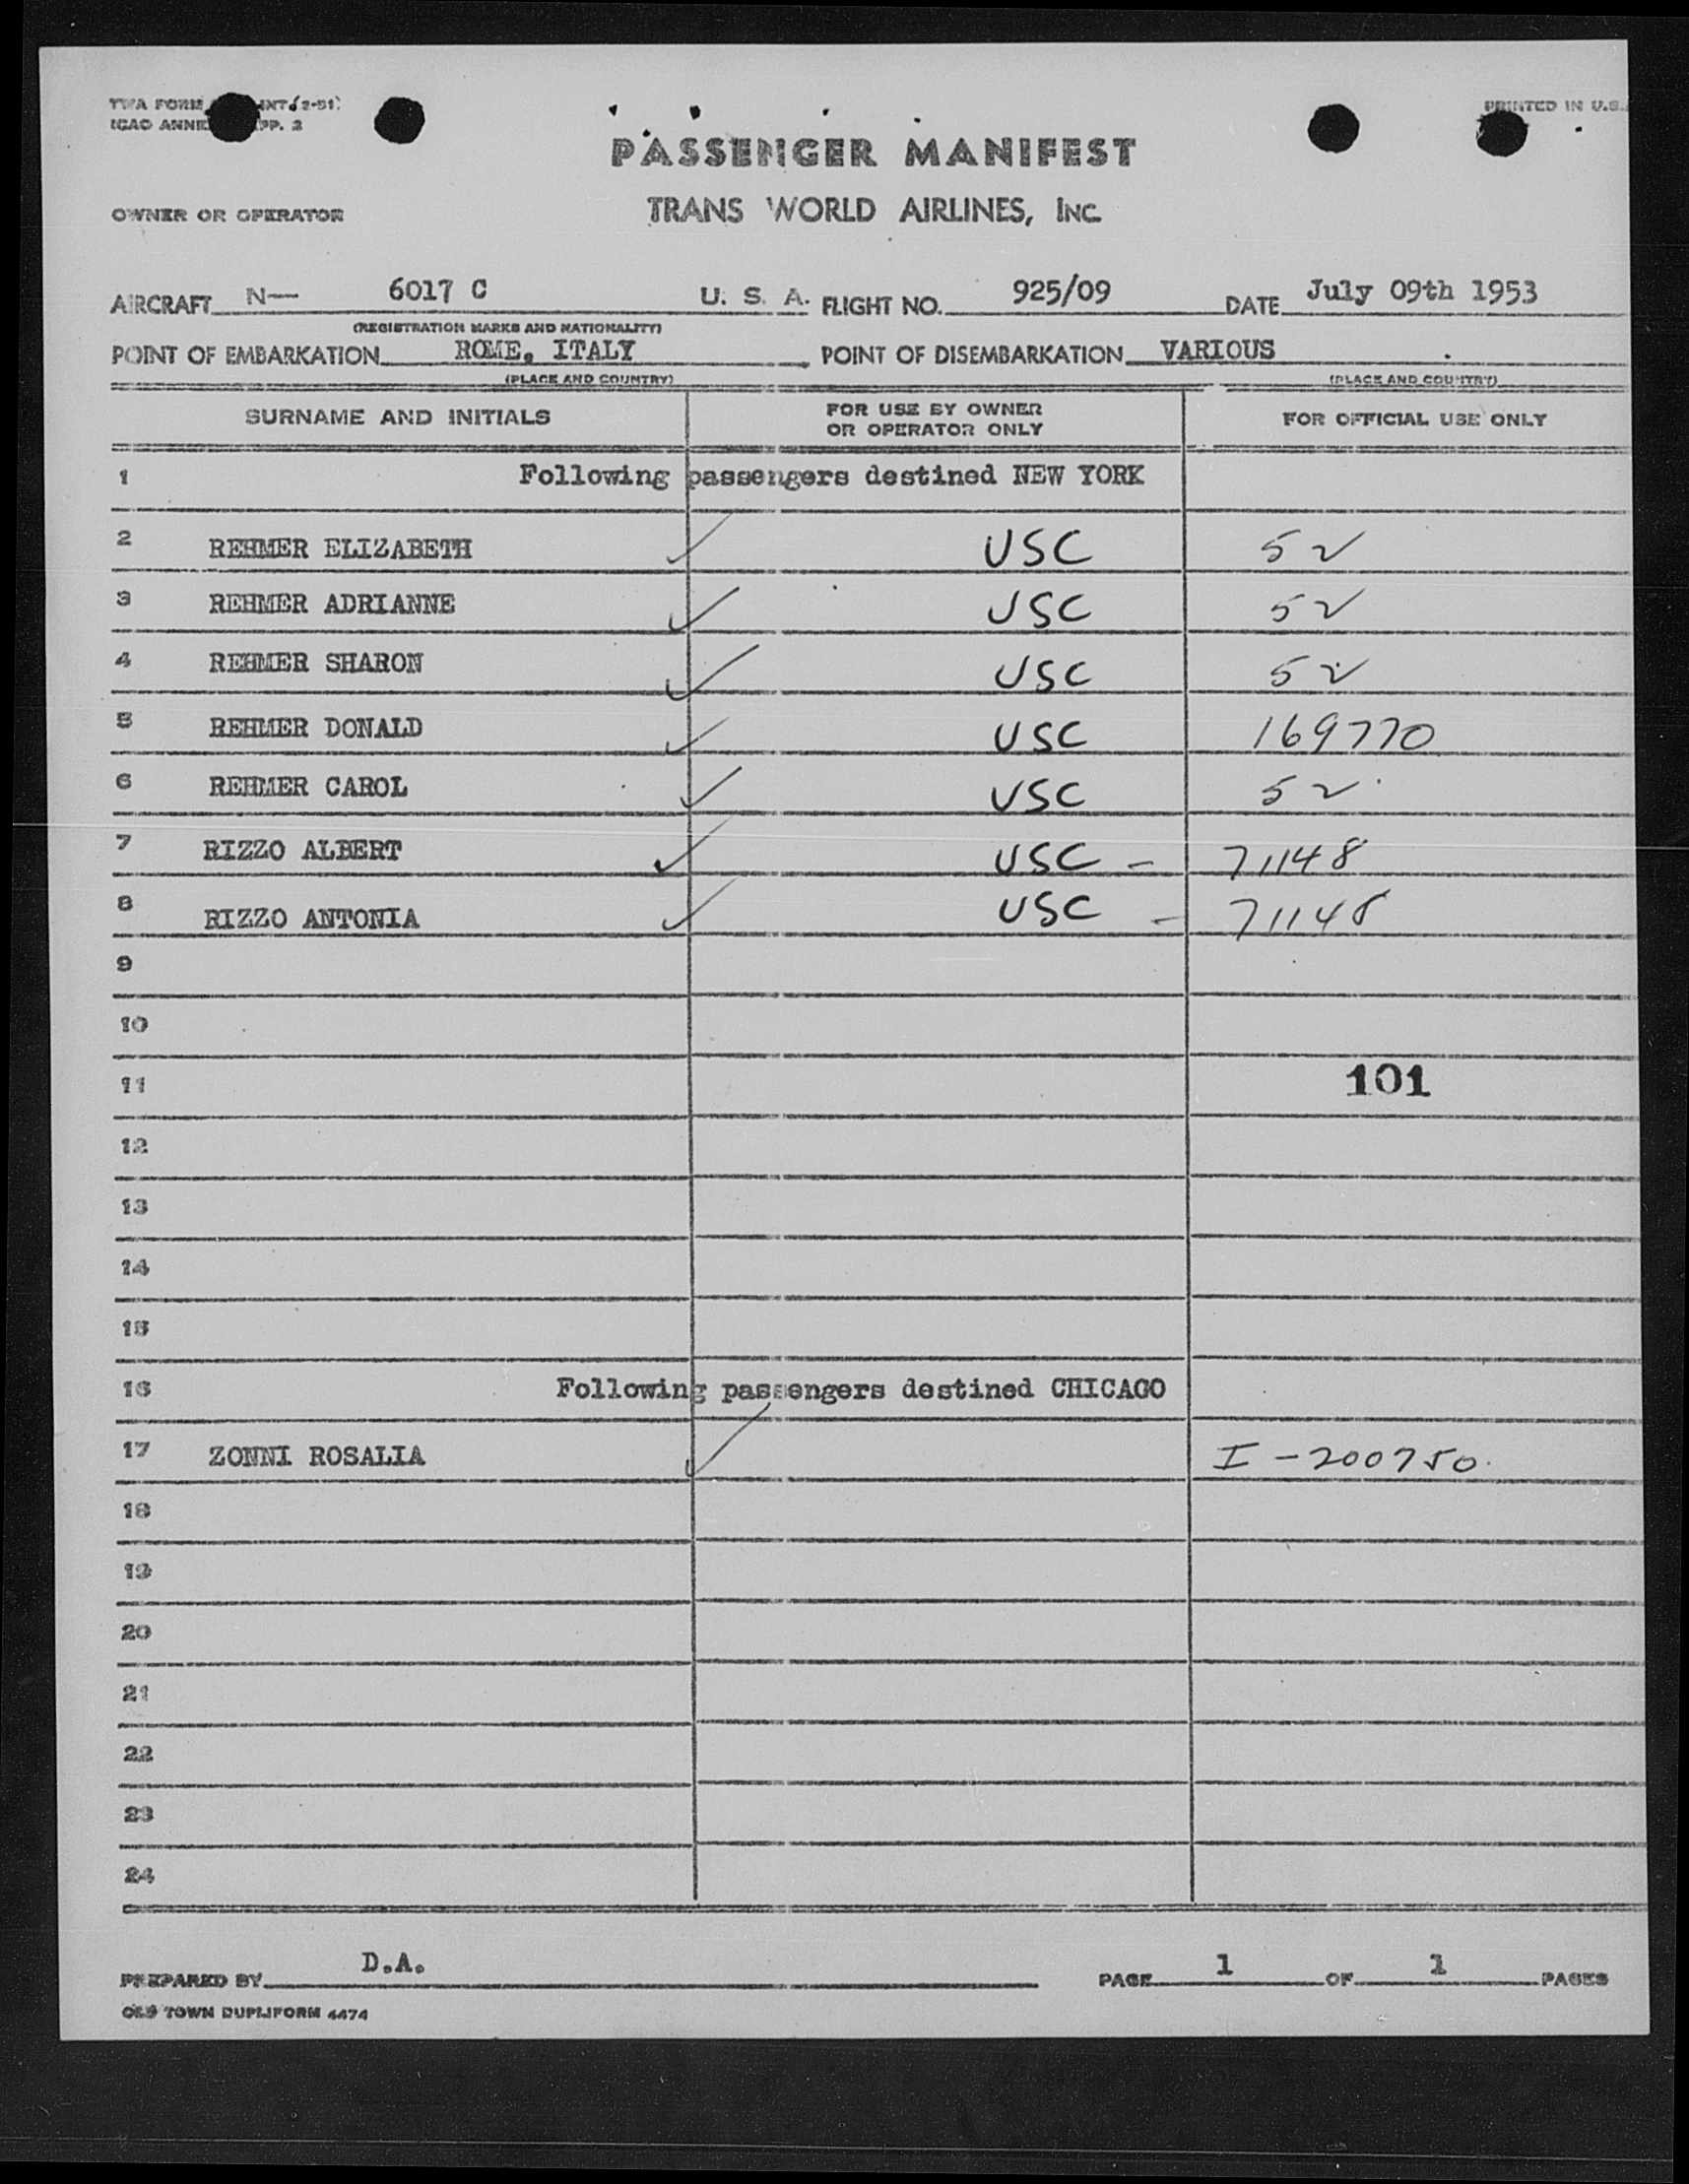 TWA FORM INT (2-51)
ICAO ANNE PP. 2
PRINTED IN U.S.
PASSENGER MANIFEST
OWNER OR OPERATOR TRANS WORLD AIRLINES, INC.
AIRCRAFT N— 6017 C U. S. A. FLIGHT NO. 925/09 DATE July 09th 1953
(REGISTRATION MARKS AND NATIONALITY)
POINT OF EMBARKATION ROME, ITALY POINT OF DISEMBARKATION VARIOUS
(PLACE AND COUNTRY) (PLACE AND COUNTRY)
SURNAME AND INITIALS FOR USE BY OWNER OR OPERATOR ONLY FOR OFFICIAL USE ONLY
1 Following passengers destined NEW YORK
2 REHMER ELIZABETH ✓ USC 52
3 REHMER ADRIANNE ✓ USC 52
4 REHMER SHARON ✓ USC 52
5 REHMER DONALD ✓ USC 169770
6 REHMER CAROL ✓ USC 52
7 RIZZO ALBERT ✓ USC - 71148
8 RIZZO ANTONIA ✓ USC - 71148
9
10
11 101
12
13
14
15
16 Following passengers destined CHICAGO
17 ZONNI ROSALIA ✓ I-200750
18
19
20
21
22
23
24
PREPARED BY D.A. PAGE 1 OF 1 PAGES
OLD TOWN DUPLIFORM 4474